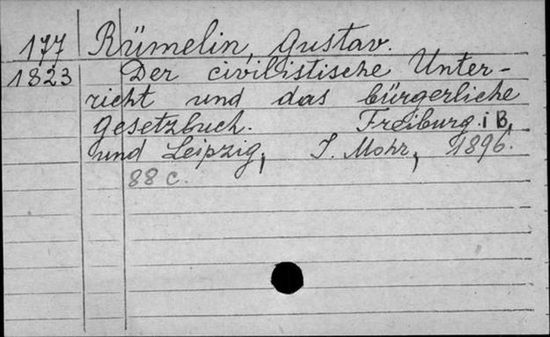 177 Rümelin, Gustav.
1823 Der civilistische Unter-
richt und das bürgerliche
Gesetzbuch. Freiburg i B,
und Leipzig, J. Mohr, 1896.
88 c.